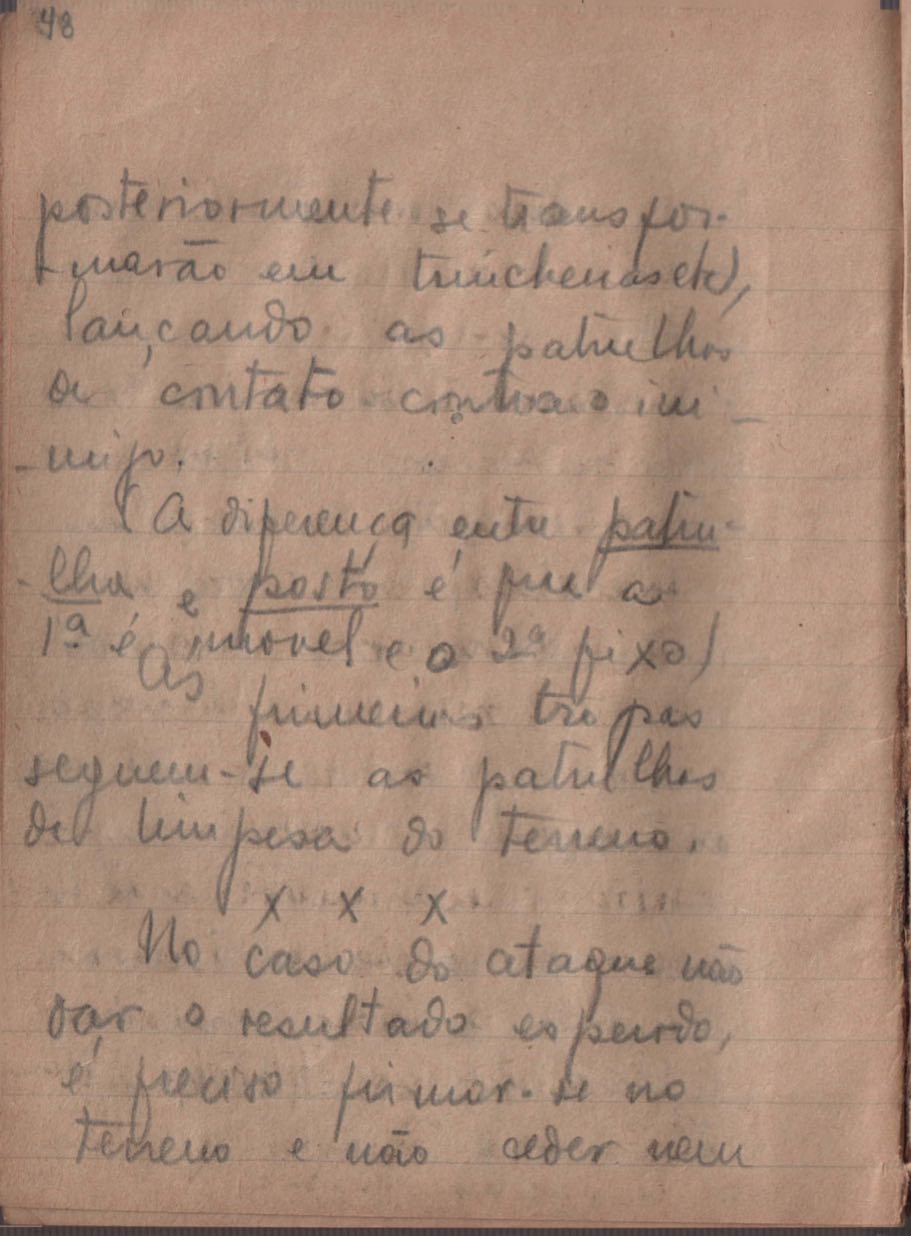 48
posteriormente se transfor-
-marão em trincheiras etc),
lançando as patrulhas
de contato contra o ini-
-migo.
(A diferença entre patru-
-lha e posto é que a
1ª é movel e o 2º fixo)
As primeiras tropas
seguem-se as patrulhas
de limpesa do terreno.
x x x
No caso do ataque não
dar o resultado esperado,
é preciso firmar-se no
terreno e não ceder nem